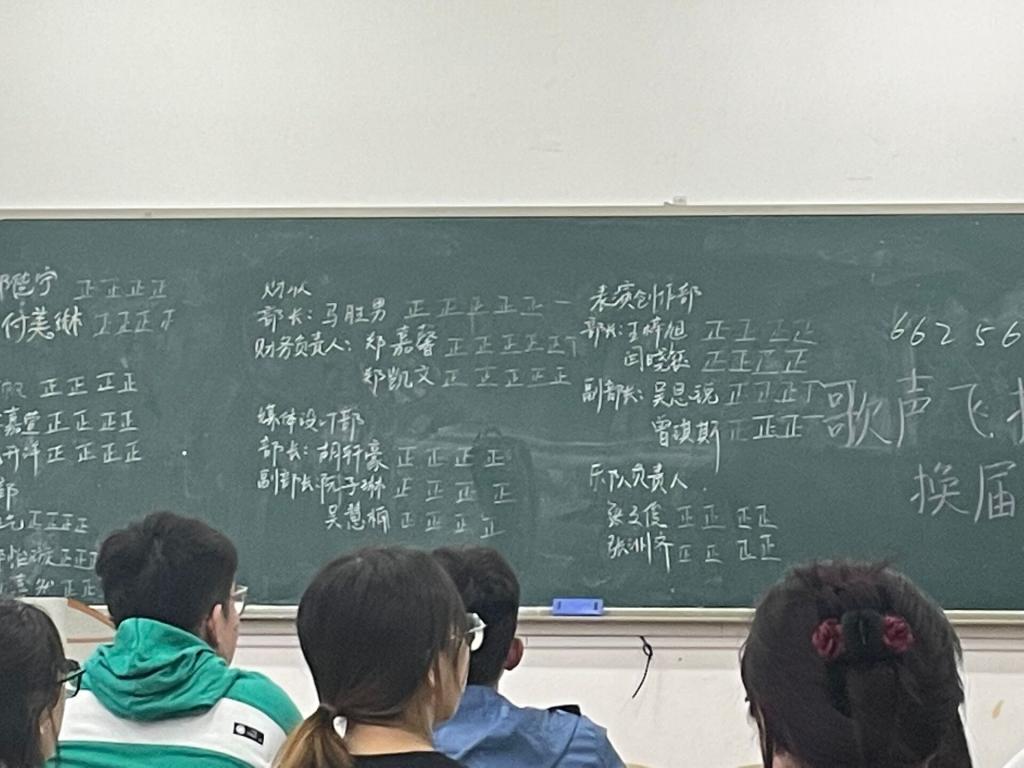 宁 正正正正
付美琳 正正正正
正正正正
嘉萱 正正正正
开洋 正正正正
部
正正正正
怡 正正正
嘉 正正
部长：马胜男 正正正正正一
财务负责人：郑嘉馨 正正正正正
郑凯文 正正正正正
媒体设计部
部长：胡轩豪 正正正正
副部长：阮子琳 正正正正
吴慧楠 正正正正
表演创作部
部长：王梓旭 正正正正
闫晓 正正正正
副部长：吴思锐 正正正
曾琪斯 正正正
乐队负责人
正正正正
张洲齐 正正正正
66256
歌声飞扬
换届